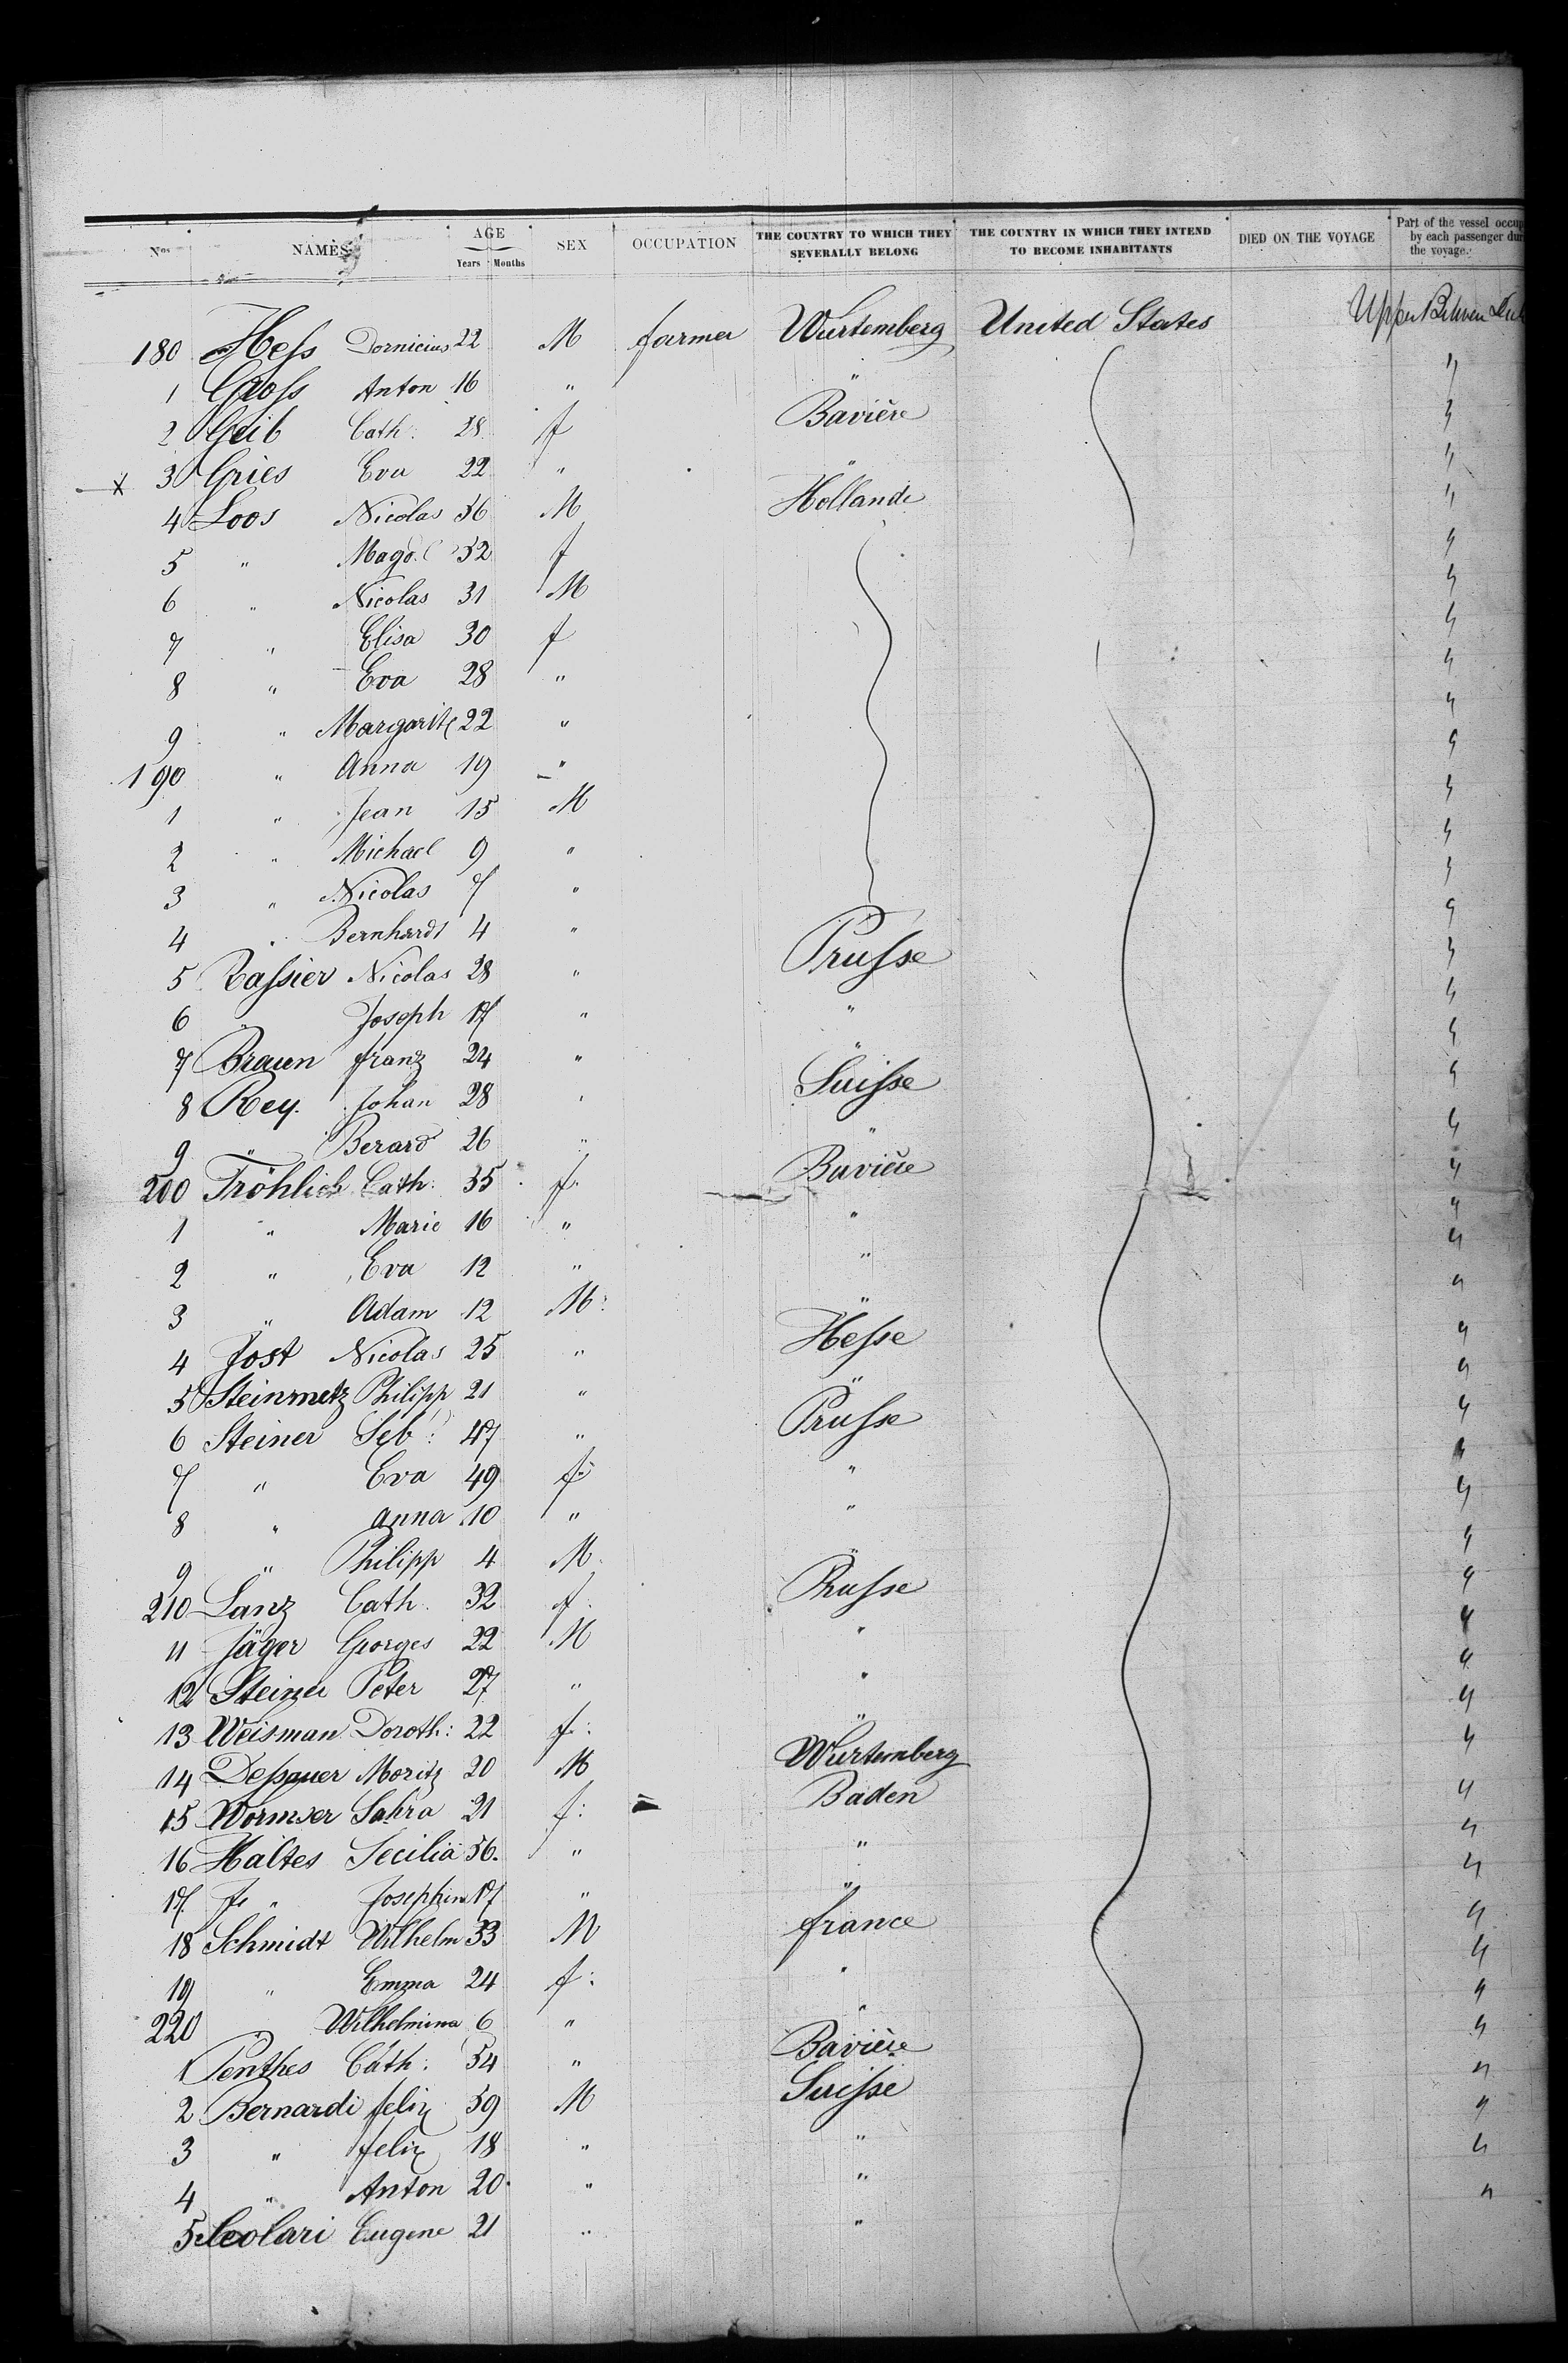 Nos NAMES AGE Years Months SEX OCCUPATION THE COUNTRY TO WHICH THEY SEVERALLY BELONG THE COUNTRY IN WHICH THEY INTEND TO BECOME INHABITANTS DIED ON THE VOYAGE Part of the vessel occup by each passenger dur the voyage.
180 Hess Dornicius 22 M farmer Wurtemberg United States Upper
1 Gross Anton 16 " " "
2 Geib Cath: 28 f Bavière "
x 3 Gries Eva 22 " " "
4 Loos Nicolas 56 M Hollande "
5 " Magd. 52 f "
6 " Nicolas 31 M "
7 " Elisa 30 f "
8 " Eva 28 " "
9 " Margarite 22 " "
190 " Anna 19 " "
1 " Jean 15 M "
2 " Michael 9 " "
3 " Nicolas 7 " "
4 " Bernhardt 4 " "
5 Tassier Nicolas 28 " Prusse "
6 " Joseph 17 " " "
7 Braun franz 24 " " "
8 Rey Johan 28 " Suisse "
9 " Berard 26 " " "
200 Fröhlich Cath: 35 f. Bavière "
1 " Marie 16 " " "
2 " Eva 12 " " "
3 " Adam 12 M: " "
4 Jost Nicolas 25 " Hesse "
5 Steinmetz Philipp 21 " " "
6 Steiner Seb: 47 " Prusse "
7 " Eva 49 f: " "
8 " Anna 10 " " "
9 " Philipp 4 M. " "
210 Lanz Cath. 32 f. Prusse "
11 Jäger Georges 22 M " "
12 Steiner Peter 27 " " "
13 Weisman Doroth: 22 f: " "
14 Dessauer Moritz 20 M Wurtemberg "
15 Wormser Sahra 21 f: Baden "
16 Haltes Secilia 56. " " "
17 " Josephine 17 " " "
18 Schmidt Wilhelm 33 M france "
19 " Emma 24 f: " "
220 " Wilhelmina 6 " " "
1 Penthes Cath: 54 " Bavière "
2 Bernardi felix 59 M Suisse "
3 " felix 18 " " "
4 " Anton 20 " " "
5 Scolari Eugene 21 " "